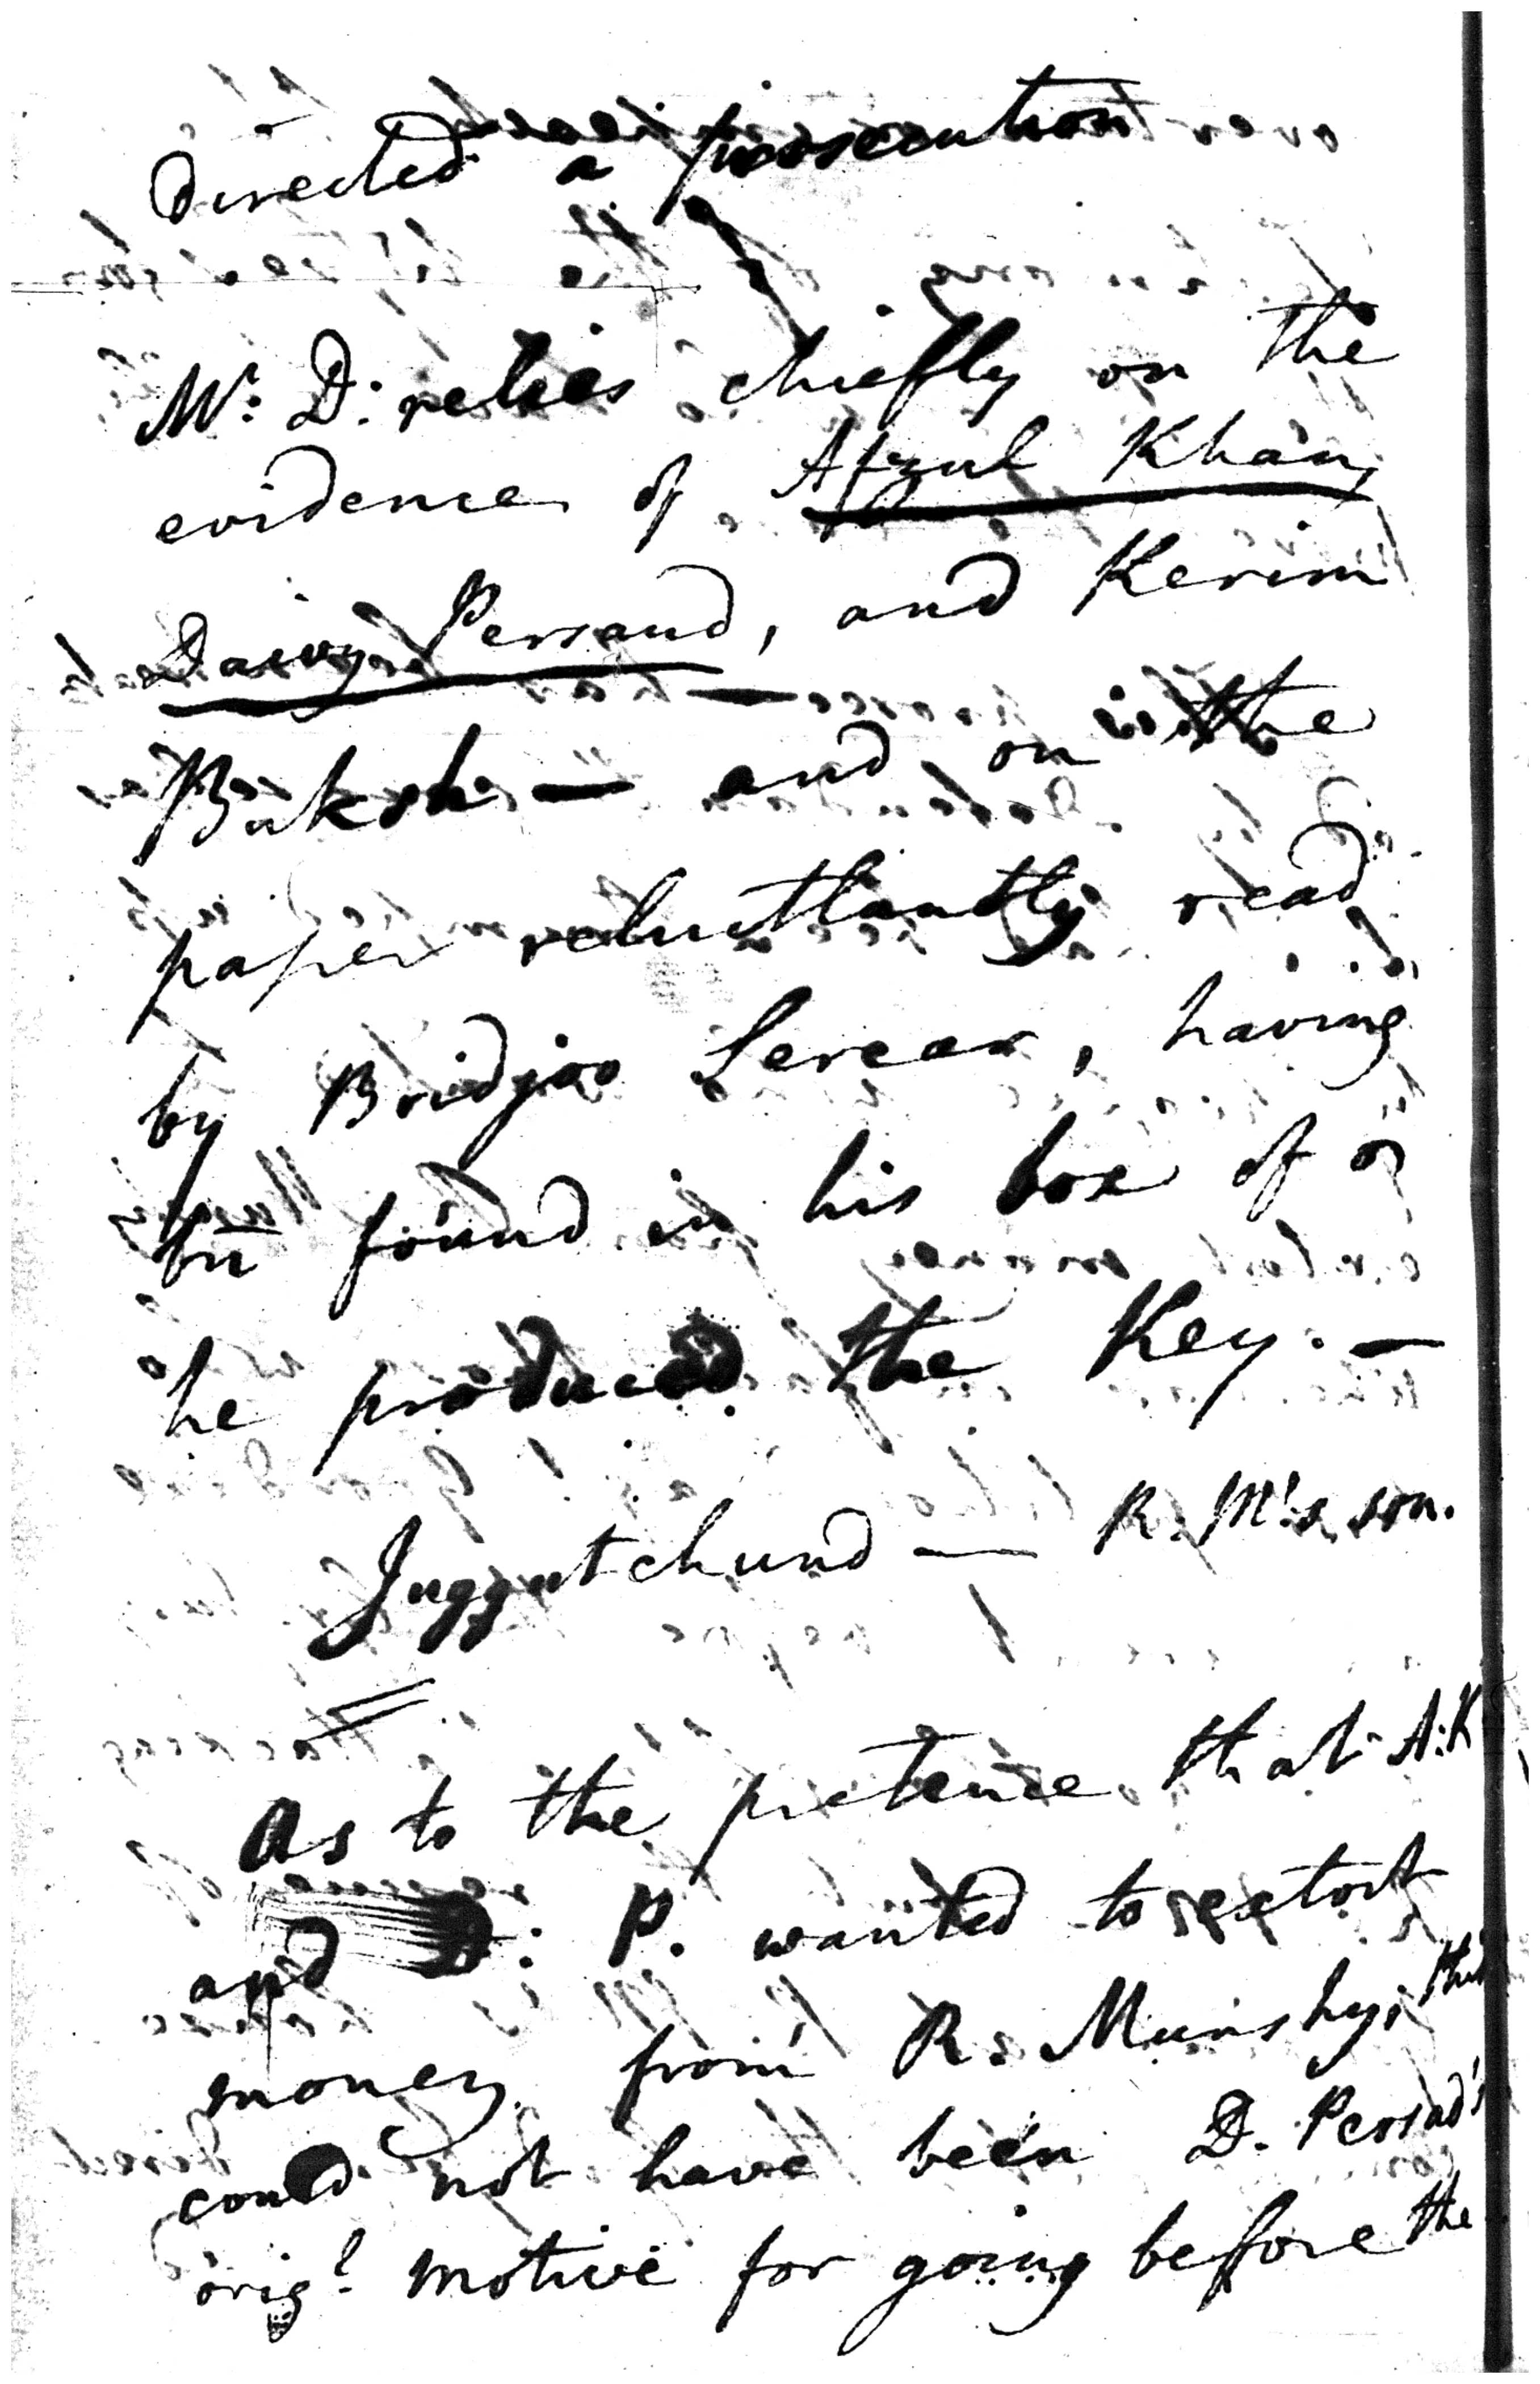 Directed a prosecution
Mr: D: relies chiefly on the
evidence of Afzul Khan,
Daivy Persaud, and Kerim
Buksh — and on the
paper reluctantly read
by Bridjoo Sercar, having
bn found in his box of wh
he produced the Key. —
Juggutchund — R. M's son.
As to the pretence that A:K
and D: P. wanted to extort
money from R. Munshy, that
could not have been D. Persad's
origl motive for going before the